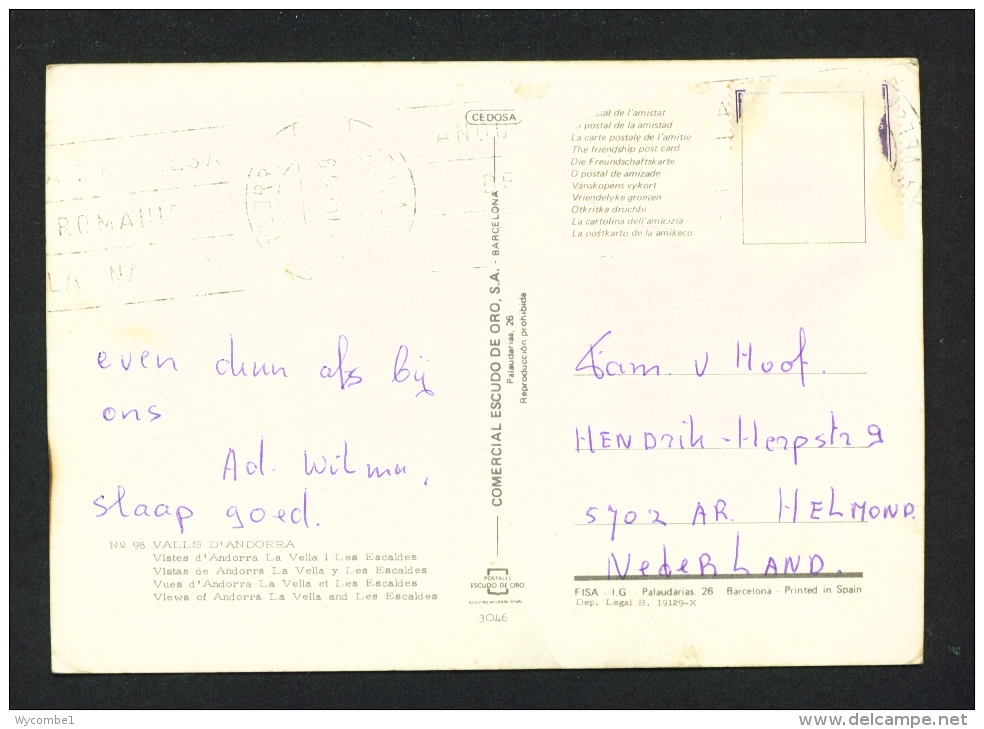 CEDOSA
postal de l'amistat
postal de la amistad
La carte postale de l'amitié
The friendship post card
Die Freundschaftskarte
O postal de amizade
Vänskopens vykort
Vriendelyke groeten
Otkritka druchbi
La cartolina dell'amicizia
La poŝtkarto de la amikeco
ROMA
LA NA
COMERCIAL ESCUDO DE ORO, S.A. - BARCELONA
Palaudarias, 26
Reproducción prohibida
even dun als bij
ons
Ad. Wilma,
slaap goed.
Fam. v Hoof.
HENDRik-Herpstr 9
5702 AR. HELMOND.
NedeRLAND.
Nº 98 VALLS D'ANDORRA
Vistes d'Andorra La Vella i Les Escaldes
Vistas de Andorra La Vella y Les Escaldes
Vues d'Andorra La Vella et Les Escaldes
Views of Andorra La Vella and Les Escaldes
POSTALES
ESCUDO DE ORO
3046
FISA - I.G - Palaudarias, 26 Barcelona - Printed in Spain
Dep. Legal B. 19129-X
Wycombe1
www.delcampe.net